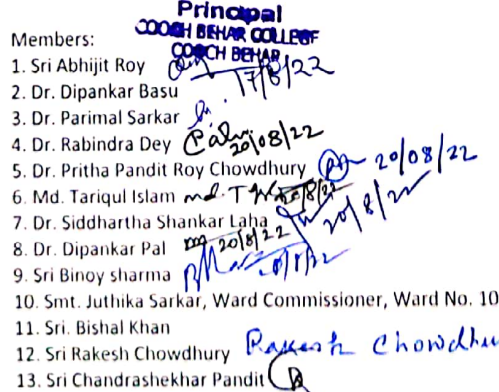 Principal
COOCH BEHAR COLLEGE
COOCH BEHAR
Members:
1. Sri Abhijit Roy 17/8/22
2. Dr. Dipankar Basu
3. Dr. Parimal Sarkar
4. Dr. Rabindra Dey 20/08/22
5. Dr. Pritha Pandit Roy Chowdhury 20/08/22
6. Md. Tariqul Islam Md. T 20/8/22
7. Dr. Siddhartha Shankar Laha 20/8/22
8. Dr. Dipankar Pal 20/8/22
9. Sri Binoy sharma
10. Smt. Juthika Sarkar, Ward Commissioner, Ward No. 10
11. Sri. Bishal Khan
12. Sri Rakesh Chowdhury Rakesh Chowdhu
13. Sri Chandrashekhar Pandit